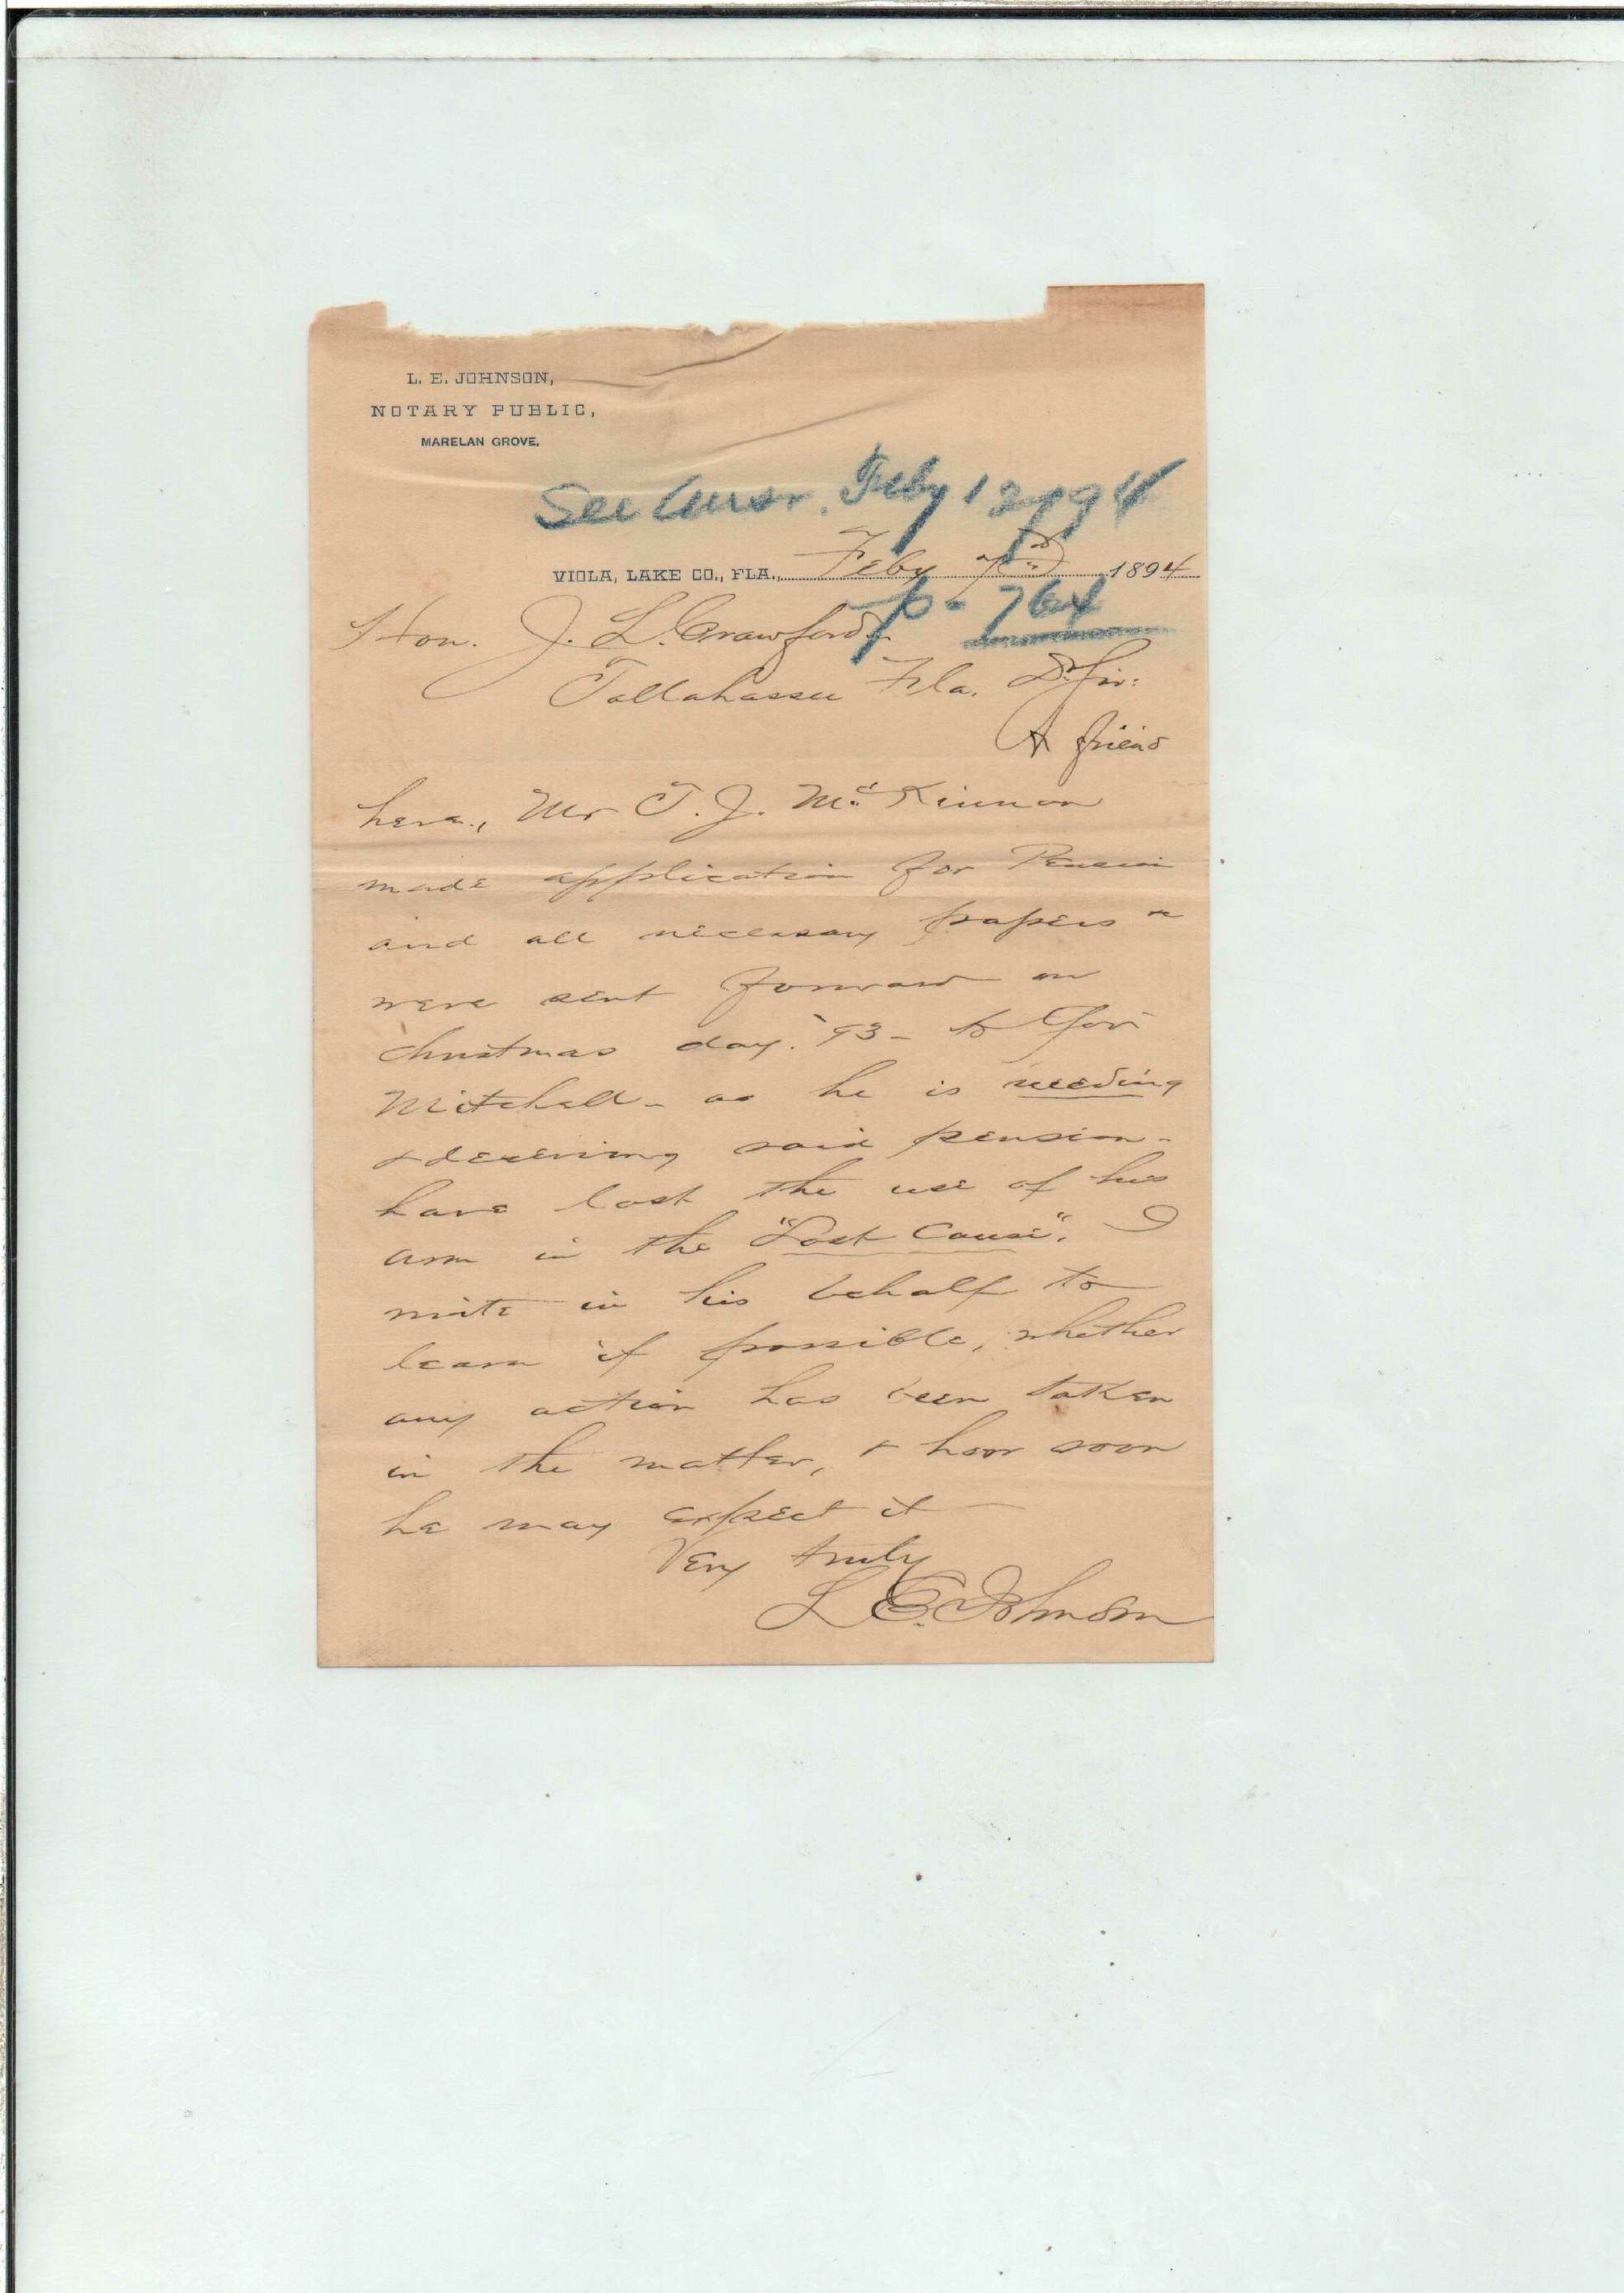 L. E. JOHNSON,
NOTARY PUBLIC,
MARELAN GROVE.
See Answr. Feby 12/94
VIOLA, LAKE CO., FLA., Feby 1894
p- 764
Hon. J. L. Crawford.
Tallahassee Fla. Dr Sir:
A friend
here, Mr T. J. McKinnon
made application for Pension
and all necessary papers
were sent forward on
christmas day. '93 - to Gov
Mitchell - as he is needing
& deserving said pension -
have lost the use of his
arm in the "Lost Cause". I
write in his behalf to
learn if possible, whether
any action has been taken
in the matter, & how soon
he may expect it
Very truly
L. E. Johnson